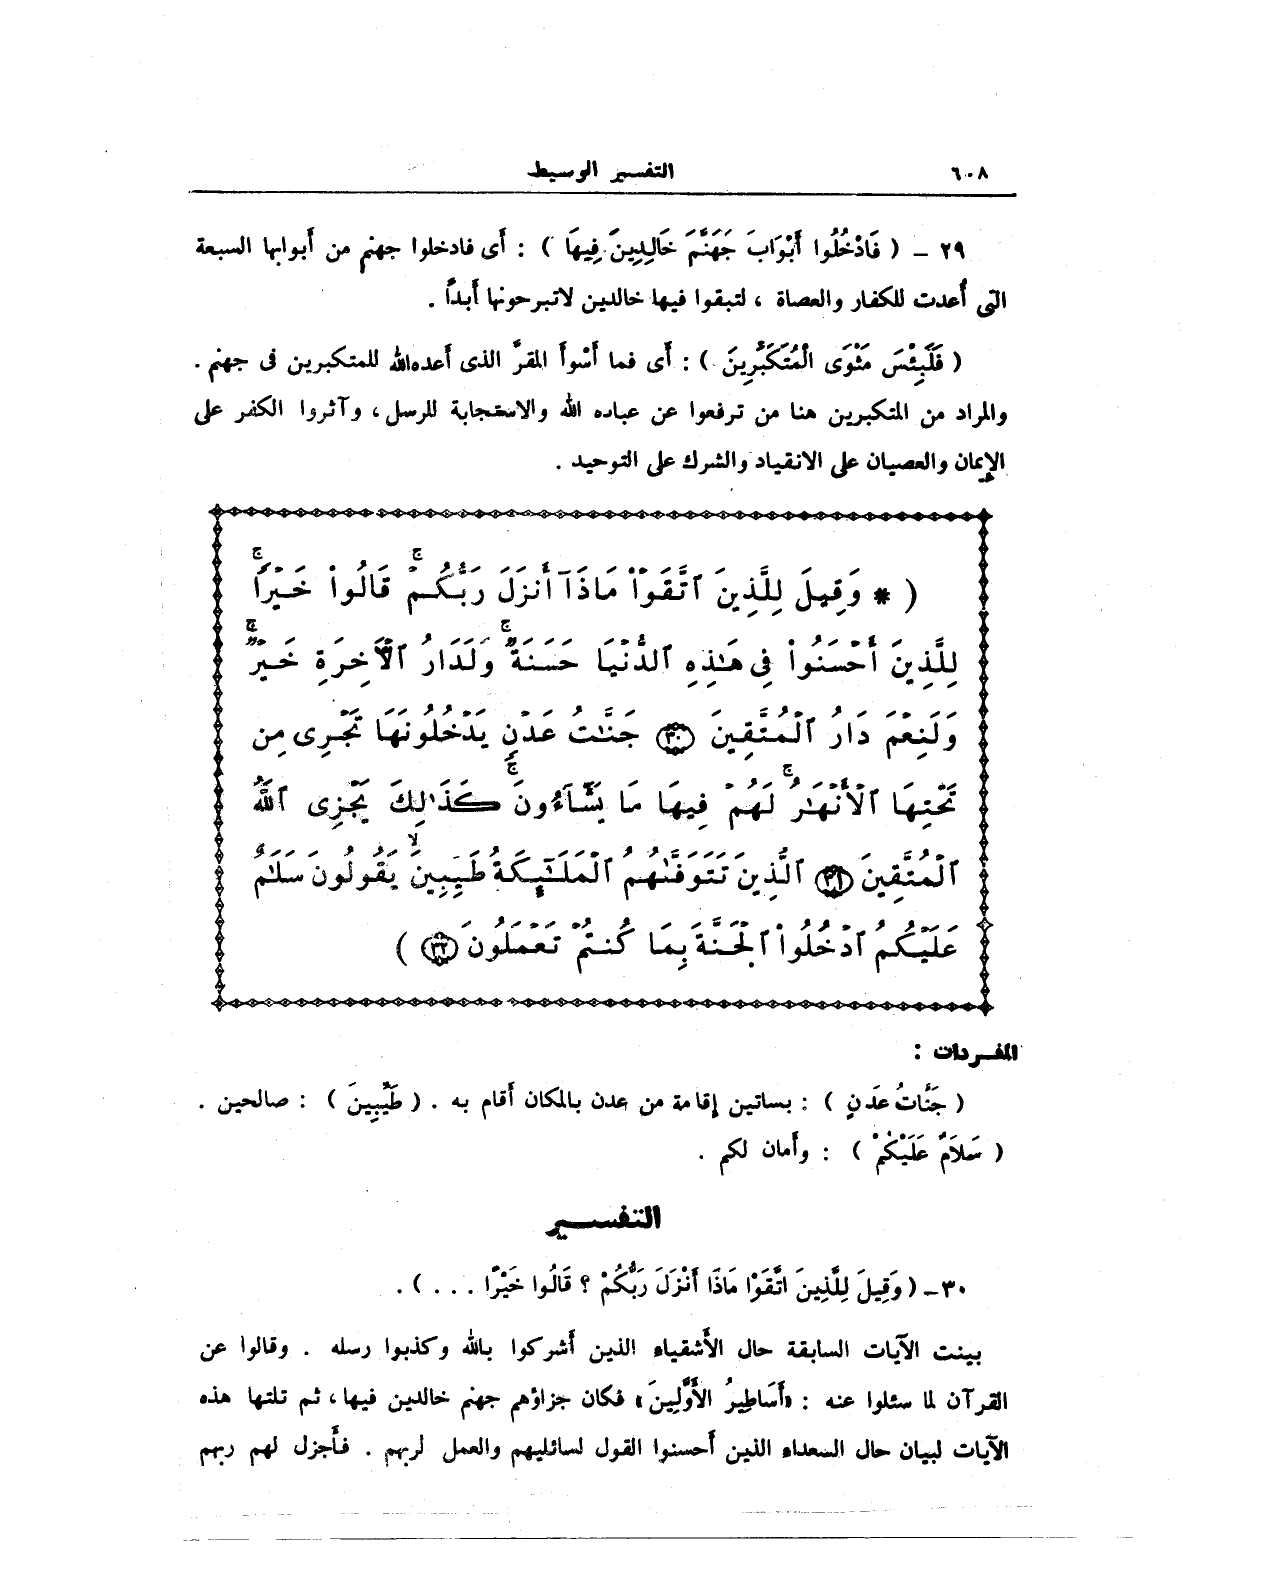 ٦٠٨ التفسير الوسيط
٢٩ – ( فَادْخُلُوا أَبْوَابَ جَهَنَّمَ خَالِدِينَ فِيهَا ) : أى فادخلوا جهنم من أبوابها السبعة
التى أُعدت للكفار والعصاة ، لتبقوا فيها خالدين لاتبرحونها أبداً .
( فَلَبِئْسَ مَثْوَى الْمُتَكَبِّرِينَ ) : أى فما أسْوأ المقرَّ الذى أعده الله للمتكبرين فى جهنم .
والمراد من المتكبرين هنا من ترفعوا عن عباده الله والاستجابة للرسل ، وآثروا الكفر على
الإيمان والعصيان على الانقياد والشرك على التوحيد .
( * وَقِيلَ لِلَّذِينَ ٱتَّقَوْا۟ مَاذَآ أَنزَلَ رَبُّكُمْ ۚ قَالُوا۟ خَيْرًا ۗ
لِّلَّذِينَ أَحْسَنُوا۟ فِى هَـٰذِهِ ٱلدُّنْيَا حَسَنَةٌ ۚ وَلَدَارُ ٱلْـَٔاخِرَةِ خَيْرٌ ۚ
وَلَنِعْمَ دَارُ ٱلْمُتَّقِينَ ٣٠ جَنَّـٰتُ عَدْنٍ يَدْخُلُونَهَا تَجْرِى مِن
تَحْتِهَا ٱلْأَنْهَـٰرُ ۖ لَهُمْ فِيهَا مَا يَشَآءُونَ ۚ كَذَٰلِكَ يَجْزِى ٱللَّهُ
ٱلْمُتَّقِينَ ٣١ ٱلَّذِينَ تَتَوَفَّـٰهُمُ ٱلْمَلَـٰٓئِكَةُ طَيِّبِينَ ۙ يَقُولُونَ سَلَـٰمٌ
عَلَيْكُمُ ٱدْخُلُوا۟ ٱلْجَنَّةَ بِمَا كُنتُمْ تَعْمَلُونَ ٣٢ )
المفـردات :
( جَنَّاتُ عَدْنٍ ) : بساتين إقامة من عدن بالمكان أقام به . ( طَيِّبِينَ ) : صالحين .
( سَلاَمٌ عَلَيْكُمْ ) : وأمان لكم .
التفســير
٣٠– ( وَقِيلَ لِلَّذِينَ اتَّقَوْا مَاذَا أَنْزَلَ رَبُّكُمْ ؟ قَالُوا خَيْرًا . . . ) .
بينت الآيات السابقة حال الأشقياء الذين أشركوا بالله وكذبوا رسله . وقالوا عن
القرآن لما سئلوا عنه : «أَسَاطِيرُ الأَوَّلِينَ» فكان جزاؤهم جهنم خالدين فيها ، ثم تلتها هذه
الآيات لبيان حال السعداء الذين أحسنوا القول لسائليهم والعمل لربهم . فأجزل لهم ربهم